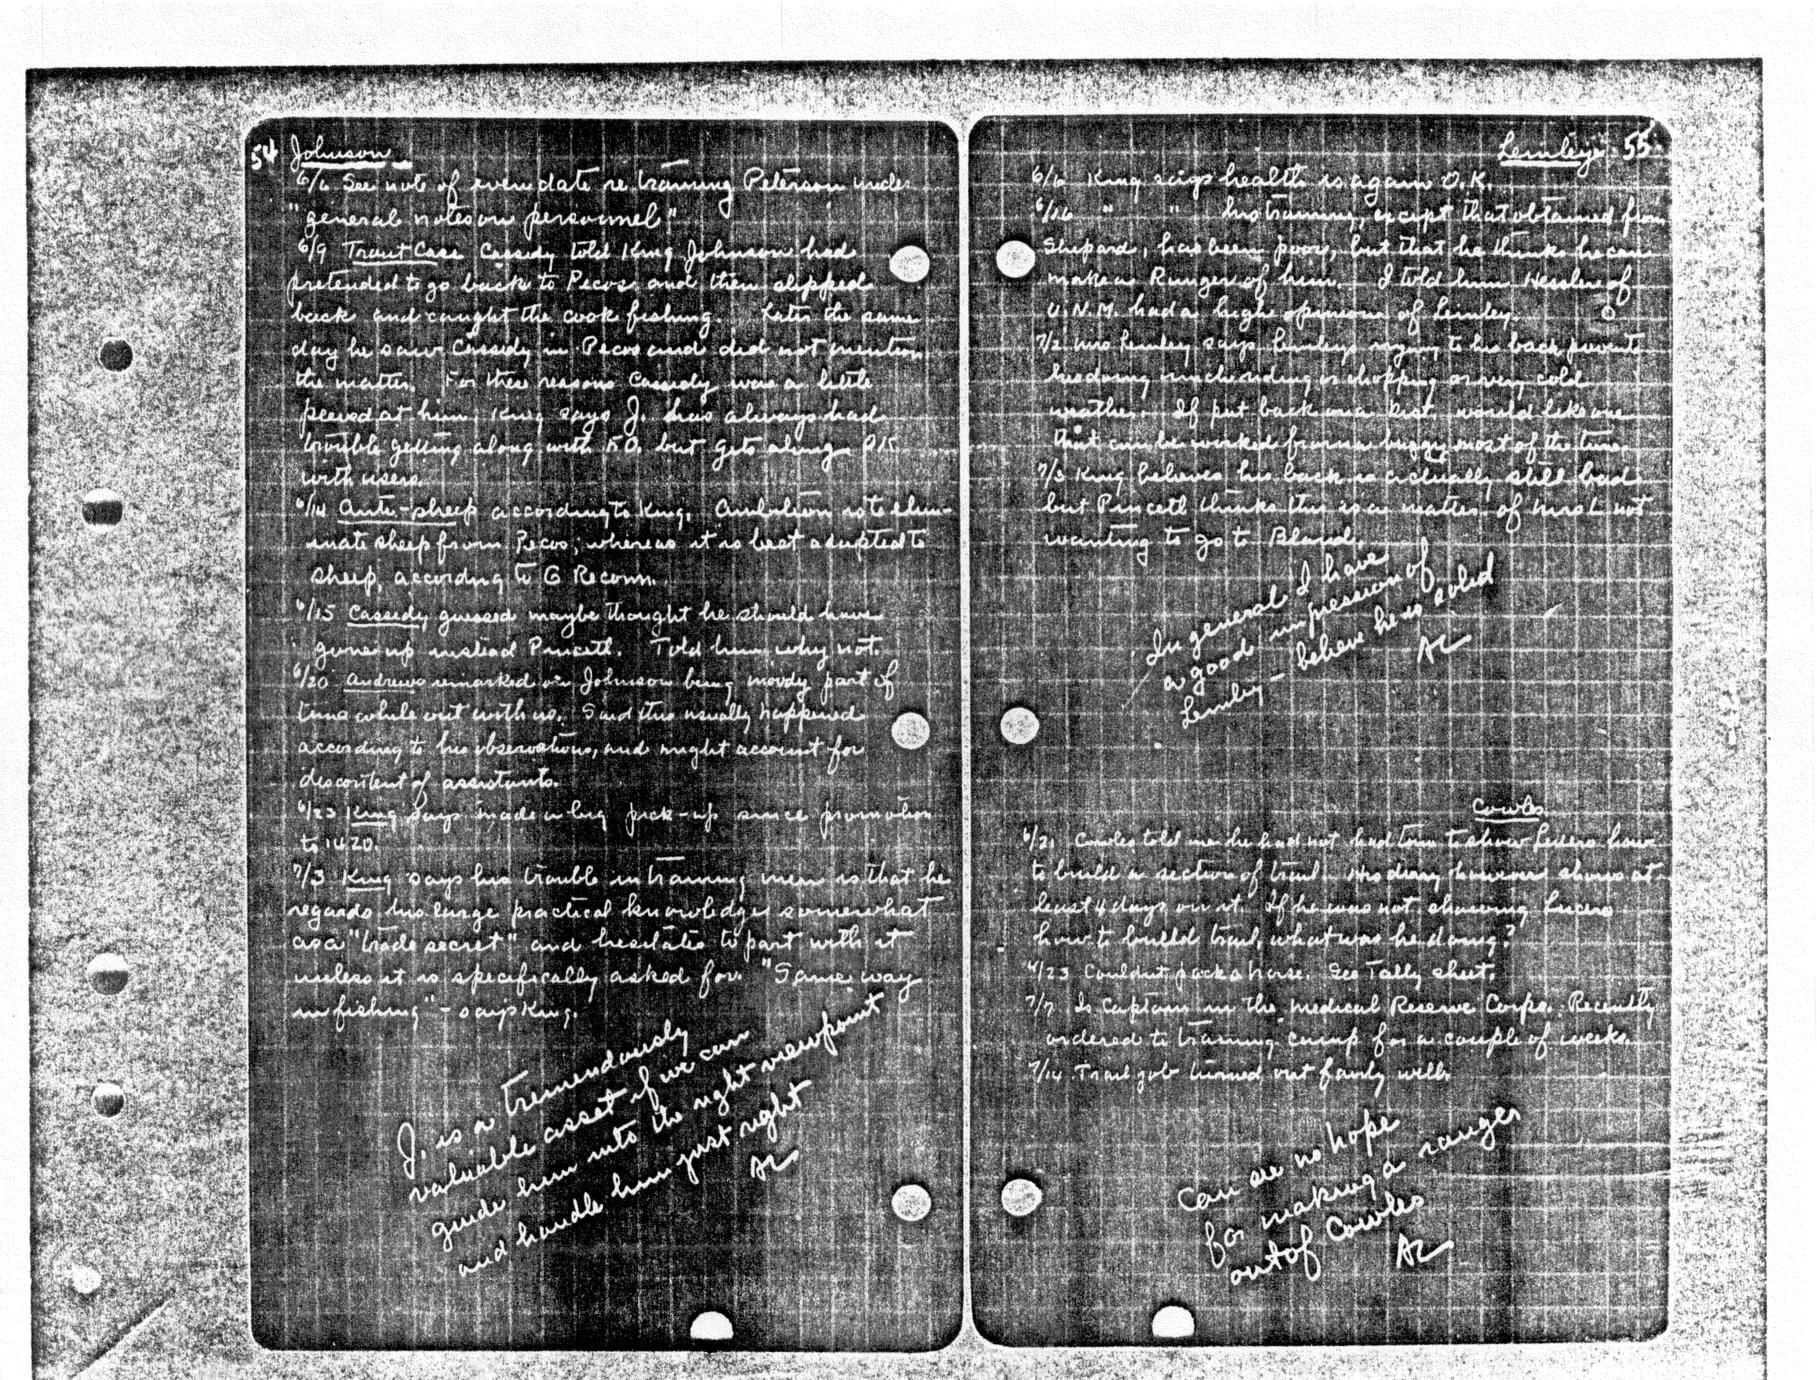 54 Johnson
6/6 See note of even date re training Peterson under
"general notes on personnel"
6/9 Trout Case Cassidy told King Johnson had
pretended to go back to Pecos and then slipped
back and caught the cook fishing. Later the same
day he saw Cassidy in Pecos and did not mention
the matter. For these reasons Cassidy was a little
peeved at him. King says J. has always had
trouble getting along with F.O. but gets along O.K.
with users.
6/14 Anti-sheep according to King. Ambition is to elim-
inate sheep from Pecos, whereas it is best adapted to
sheep, according to G Reconn.
6/15 Cassidy guessed maybe thought he should have
gone up instead Pincett. Told him why not.
6/20 Andrews remarked on Johnson being moody part of
time while out with us. Said this usually happened
according to his observations, and might account for
discontent of assistants.
6/23 King says made a big pick-up since promotion
to 1420.
7/3 King says his trouble in training men is that he
regards his large practical knowledge somewhat
as a "trade secret" and hesitates to part with it
unless it is specifically asked for. "Same way
in fishing" - says King.
J. is a tremendously
valuable asset if we can
guide him into the right viewpoint
and handle him just right
AL
Lemley 55
6/6 King says health is again O.K.
6/16 " " his training, except that obtained from
Shepard, has been poor, but that he thinks he can
make a Ranger of him. I told him of
U.N.M. had a high opinion of Lemley.
7/2 Mrs Lemley says Lemleys injury to his back prevents
his doing much riding or chopping or very cold
weather. If put back on a Dist. would like one
that can be worked from a buggy most of the time.
7/3 King believes his back is actually still bad
but Pincett thinks this is a matter of Mrs L not
wanting to go to Bland.
In general I have
a good impression of
Lemley - believe he is solid
AL
Cowles
6/21 Cowles told me he had not had time to show Lucero how
to build a section of trail. His diary however shows at
least 4 days on it. If he was not showing Lucero
how to build trail, what was he doing?
6/23 Couldnt pack a horse. See Tally sheet.
7/7 Is Captain in the Medical Reserve Corps. Recently
ordered to training camp for a couple of weeks.
7/14 Trail job turned out fairly well.
Can see no hope
for making a ranger
out of Cowles
AL